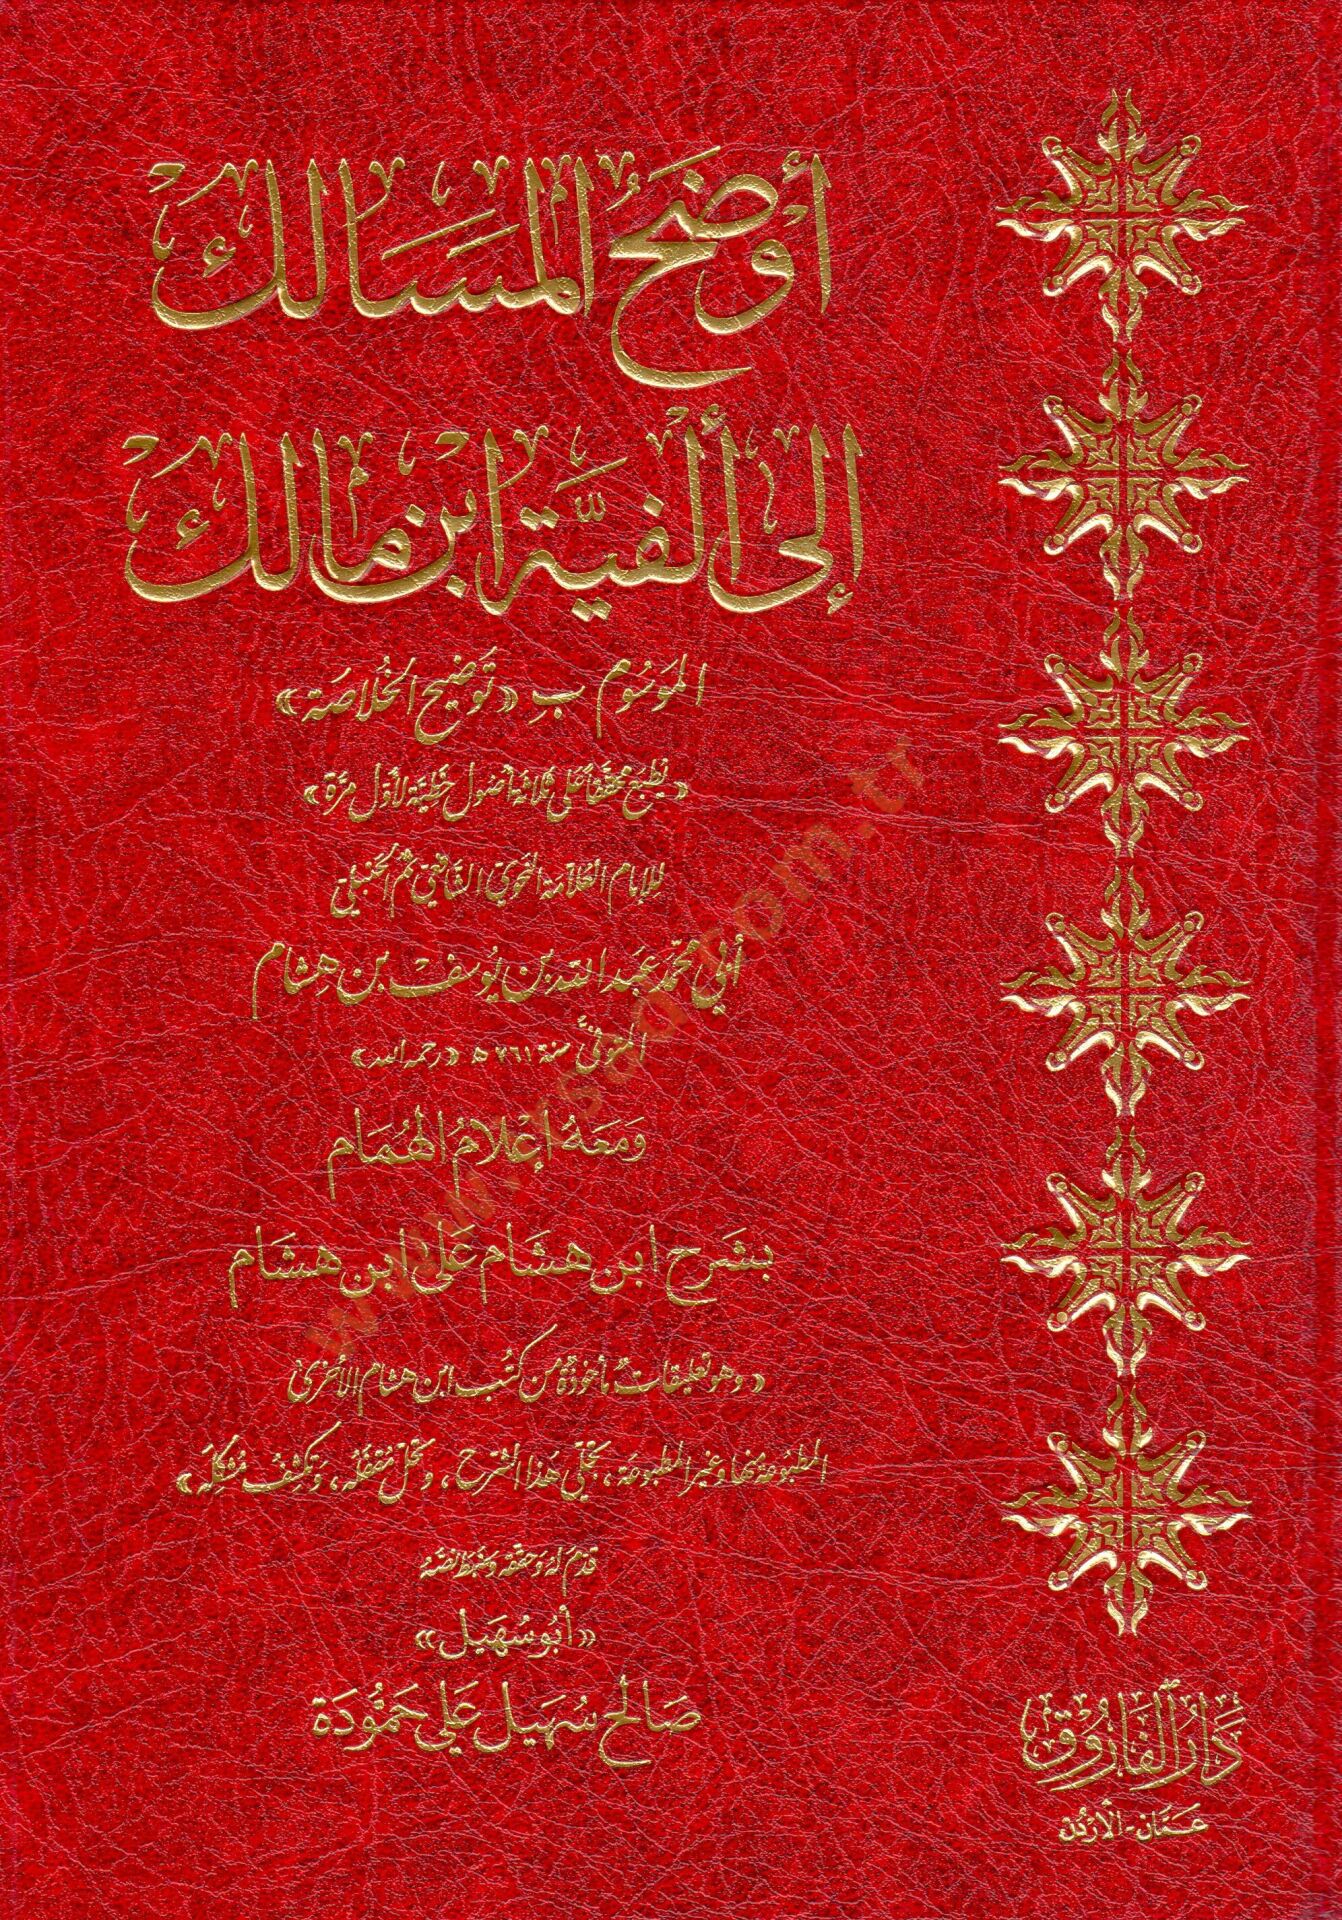 أَوضَحُ المَسَالك
إلى ألفيَّة ابن مالك
الموَسُوم بـ «تَوضيح الخُلاصَة»
«يُطبع محققاً على ثلاثة أصُول خطيَّة لأوّل مرَّة»
للإمام العَلّامة النحوي الشافعي ثم الحنبلي
أبي محمّد عَبد الله بن يوُسف بن هِشام
المتوفَّى سَنة ٧٦١ هـ «رحمه الله»
وَمَعَهُ إعْلامُ الهُمَام
بشَرح ابن هشَام عَلى ابن هشَام
«وهو تعليقات مأخوذة من كتُب ابن هشام الأخرى
المطبُوعة منها وغير المطبوعة، تجلّي هذا الشرح، وتحل مُقفله، وَتكشِفُ مُشكِلَه»
قدّمَ له وَحققه وَضبط نصّه
«أبُو سُهَيل»
صَالح سُهَيل عَلي حَمُّودَة
دَارُ الفَارُوق
عَمّان - الأردُن
www.rsa.com.tr